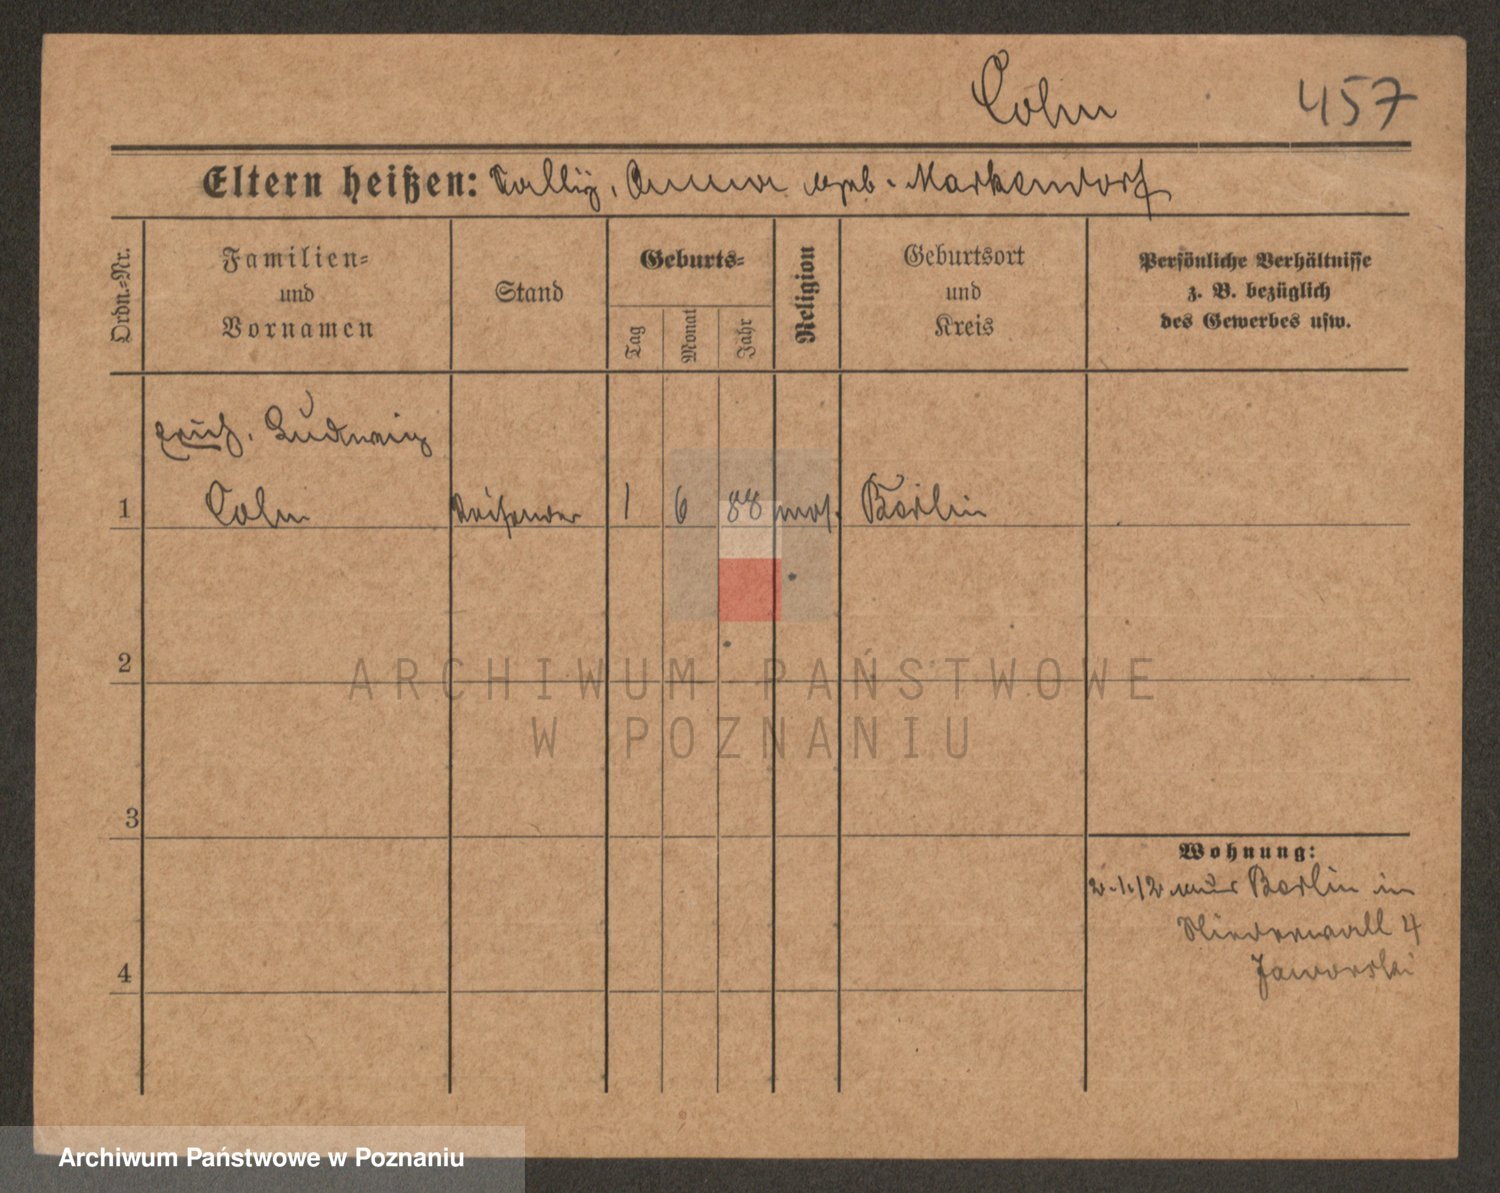 Cohn 457
Eltern heißen: Sally, Anna geb. Markendorf
Ordn.-Nr.
Familien-
und
Vornamen
Stand
Geburts-
Tag
Monat
Jahr
Religion
Geburtsort
und
Kreis
Persönliche Verhältnisse
z. B. bezüglich
des Gewerbes usw.
Erich, Ludwig
1 Cohn Reisender 1 6 88 mos. Berlin
2
ARCHIWUM PAŃSTWOWE
W POZNANIU
3
Wohnung:
2.1.12 aus Berlin in
Niederwall 4
Jaworski
4
Archiwum Państwowe w Poznaniu